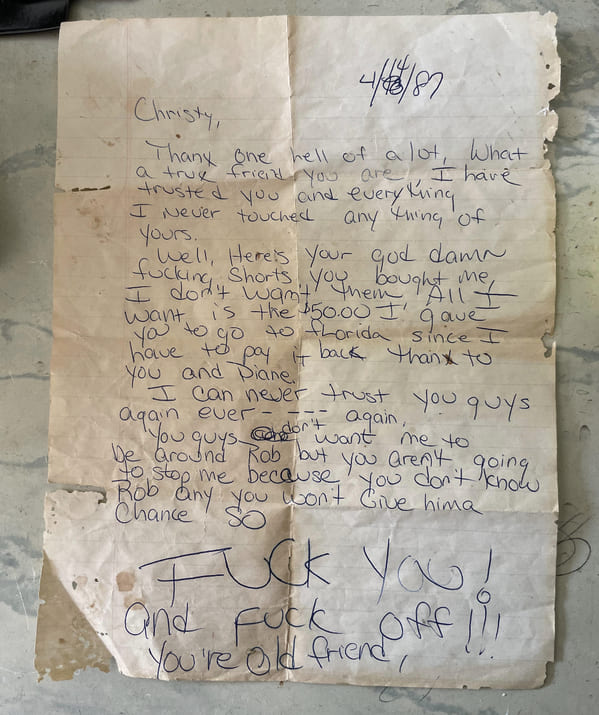 4/14/87
Christy,
Thanx one hell of a lot, What
a true friend you are, I have
trusted you and everything
I never touched any thing of
yours.
Well, Here's your god damn
fucking shorts you bought me,
I don't want them All I
want is the $50.00 I gave
you to go to florida since I
have to pay it back thanx to
you and Diane.
I can never trust you guys
again ever - - - - again.
You guys don't want me to
be around Rob but you aren't going
to stop me because you don't know
Rob any you won't Give him a
Chance SO
FUCK YOU!
and FUCK off!!!
You're Old friend,